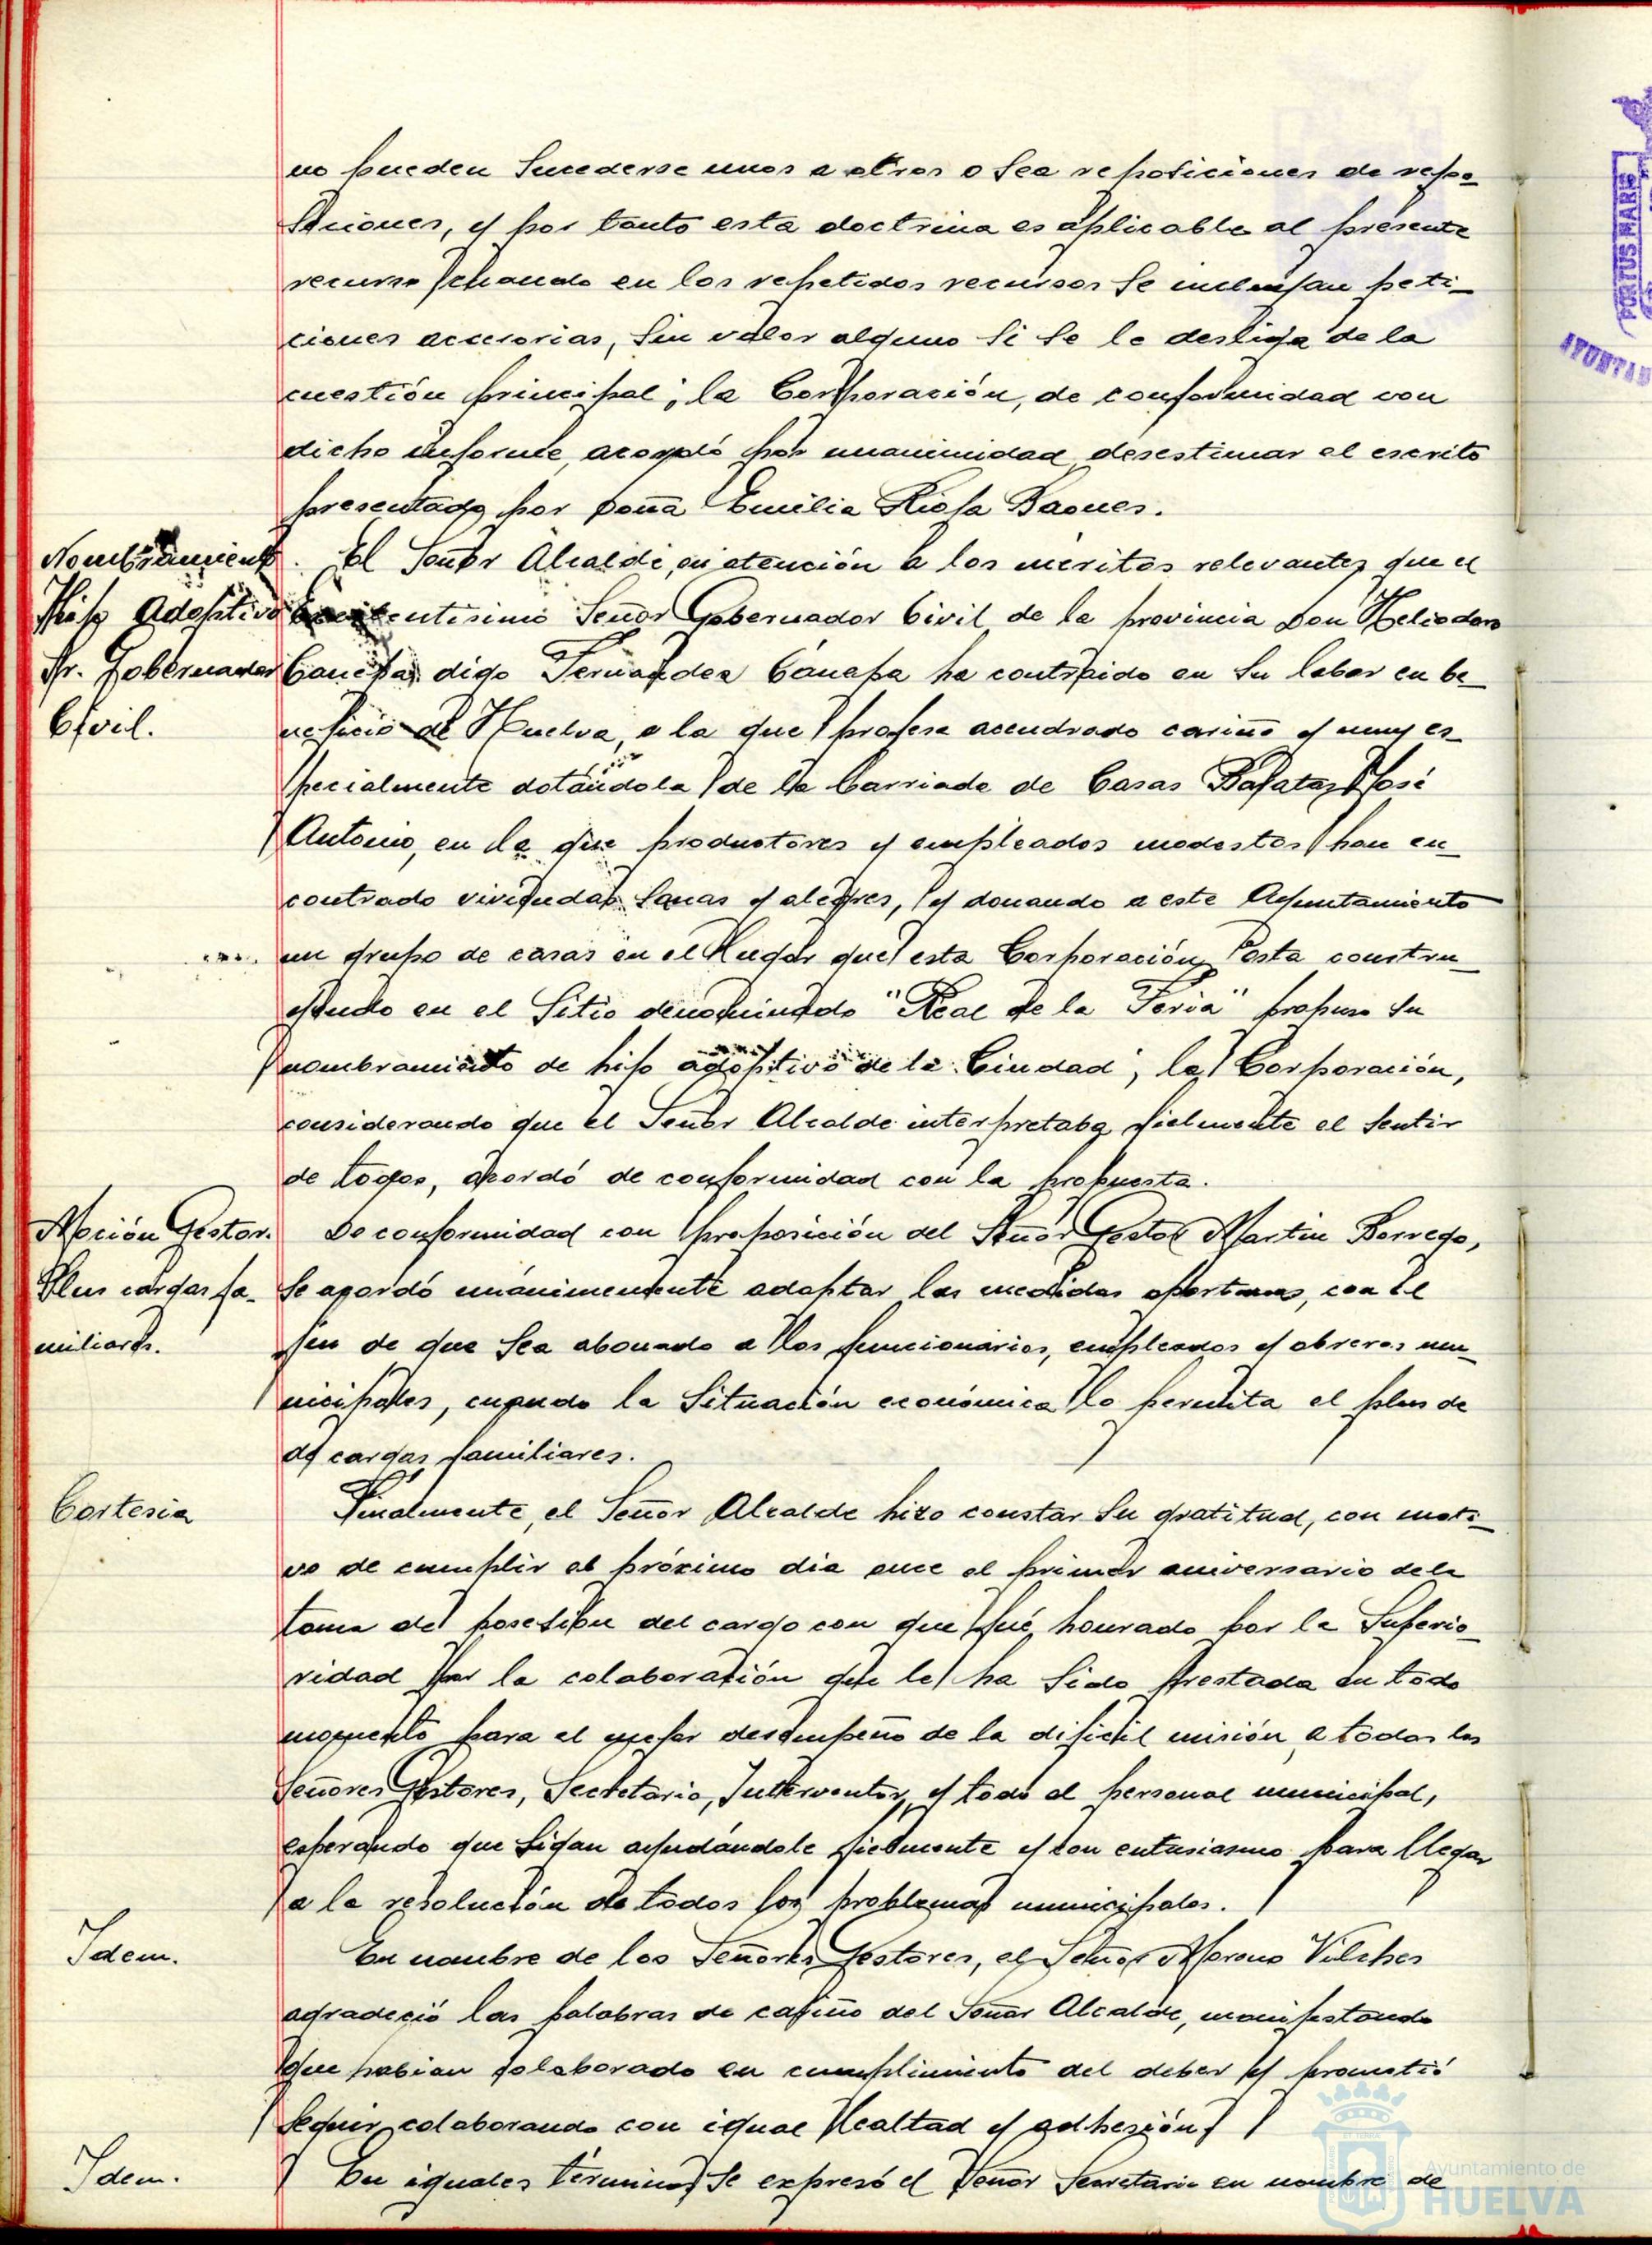 no pueden sucederse unos a otros o sea reposiciones de repo-
siciones, y por tanto esta doctrina es aplicable al presente
recurso cuando en los repetidos recursos se incluyan peti-
ciones accesorias, sin valor alguno si se le desliga de la
cuestión principal; la Corporación, de conformidad con
dicho informe, acordó por unanimidad desestimar el escrito
presentado por Doña Emilia Baques.
Nombramiento
Hijo Adoptivo
Sr. Gobernador
Civil.
El Señor Alcalde, en atención a los méritos relevantes que el
Excelentisimo Señor Gobernador Civil de la provincia Don Heliodoro
Canepa, digo Fernandez Canepa ha contraido en su labor en be-
neficio de Huelva, a la que profesa acendrado cariño y muy es-
pecialmente dotándola de la barriada de Casas Baratas José
Antonio, en la que productores y empleados modestos han en-
contrado viviendas sanas y alegres, y donando a este Ayuntamiento
un grupo de casas en el lugar que esta Corporación esta constru-
yendo en el sitio denominado "Real de la Feria" propuso su
nombramiento de hijo adoptivo de la Ciudad; la Corporación,
considerando que el Señor Alcalde interpretaba fielmente el sentir
de todos, acordó de conformidad con la propuesta.
Moción Gestor.
Plus cargas fa-
miliares.
De conformidad con proposición del Señor Gestor Martin Borrego,
se acordó unánimemente adoptar las medidas oportunas, con el
fin de que sea abonado a los funcionarios, empleados y obreros mu-
nicipales, cuando la situación económica lo permita el plus de
de cargas familiares.
Cortesia
Finalmente, el Señor Alcalde hizo constar su gratitud, con moti-
vo de cumplir el próximo dia once el primer aniversario de la
toma de posesión del cargo con que fué honrado por la Superio-
ridad por la colaboración que le ha sido prestada en todo
momento para el mejor desempeño de la dificil misión, a todos los
Señores Gestores, Secretario, Interventor, y todo el personal municipal,
esperando que sigan ayudándole fielmente y con entusiasmo para llegar
a la resolución de todos los problemas municipales.
Idem.
En nombre de los Señores Gestores, el Señor Moreno Vilches
agradeció las palabras de cariño del Señor Alcalde, manifestando
que habian colaborado en cumplimiento del deber y prometió
seguir colaborando con igual lealtad y adhesión.
Idem.
En iguales términos se expresó el Señor Secretario en nombre de
PORTUS MARIS
AYUNTA
Ayuntamiento de
HUELVA